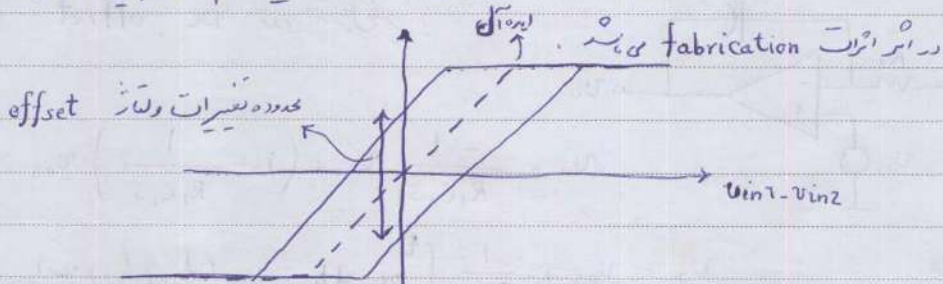 در اثر اثرات fabrication می باشد.
ایده آل
محدوده تغییرات ولتاژ effset
vin1-vin2